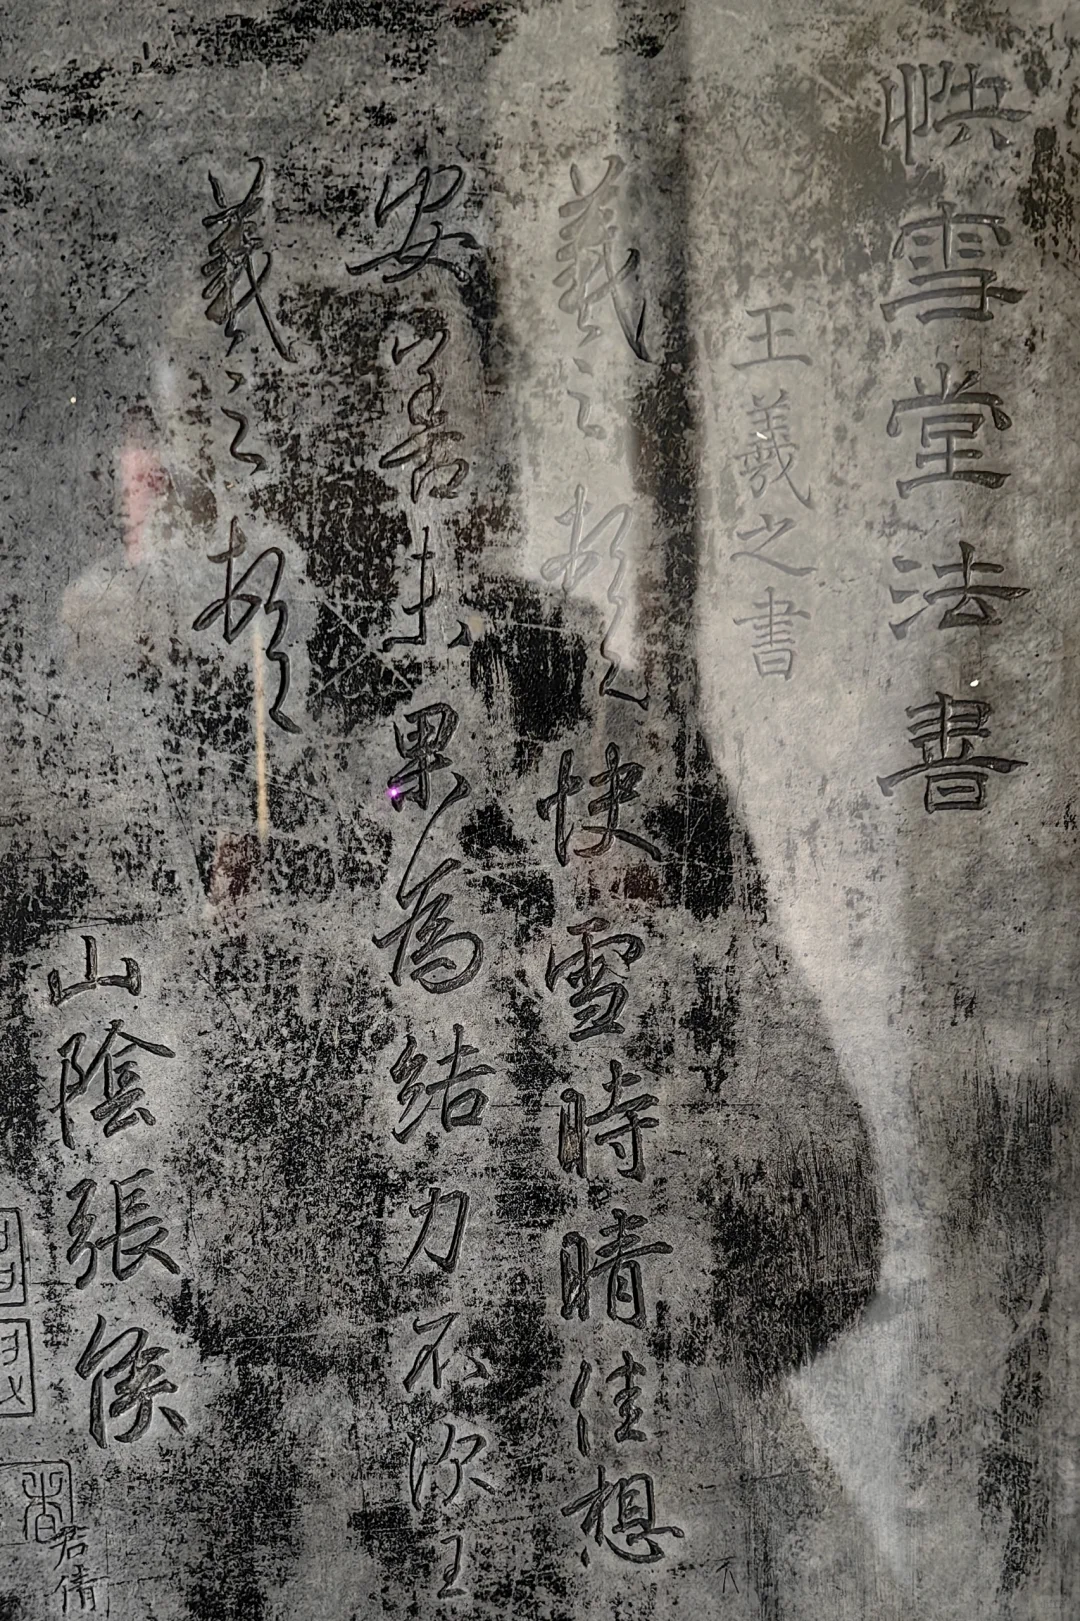 快雪堂法書
王羲之書
羲之頓首快雪時晴佳想
安善未果為結力不次王
羲之頓首
山陰張侯
君倩